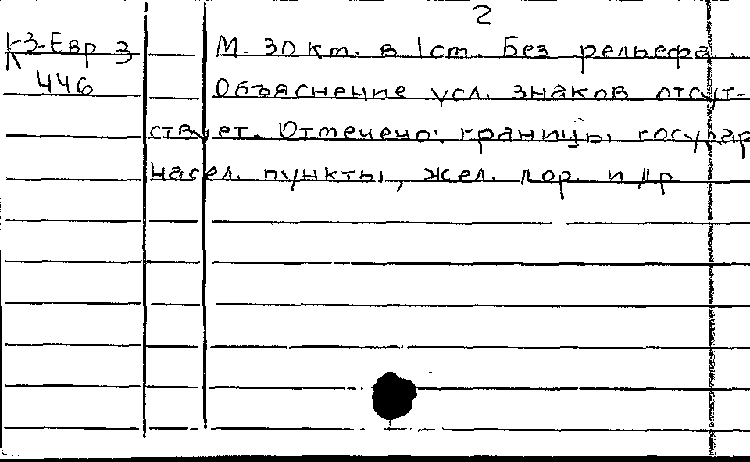 2
К3-Евр 3
446
М. 30 км. в 1 см. Без рельефа.
Объяснение усл. знаков отсут-
ствует. Отмечено: границы государ
насел. пункты, жел. дор. и др